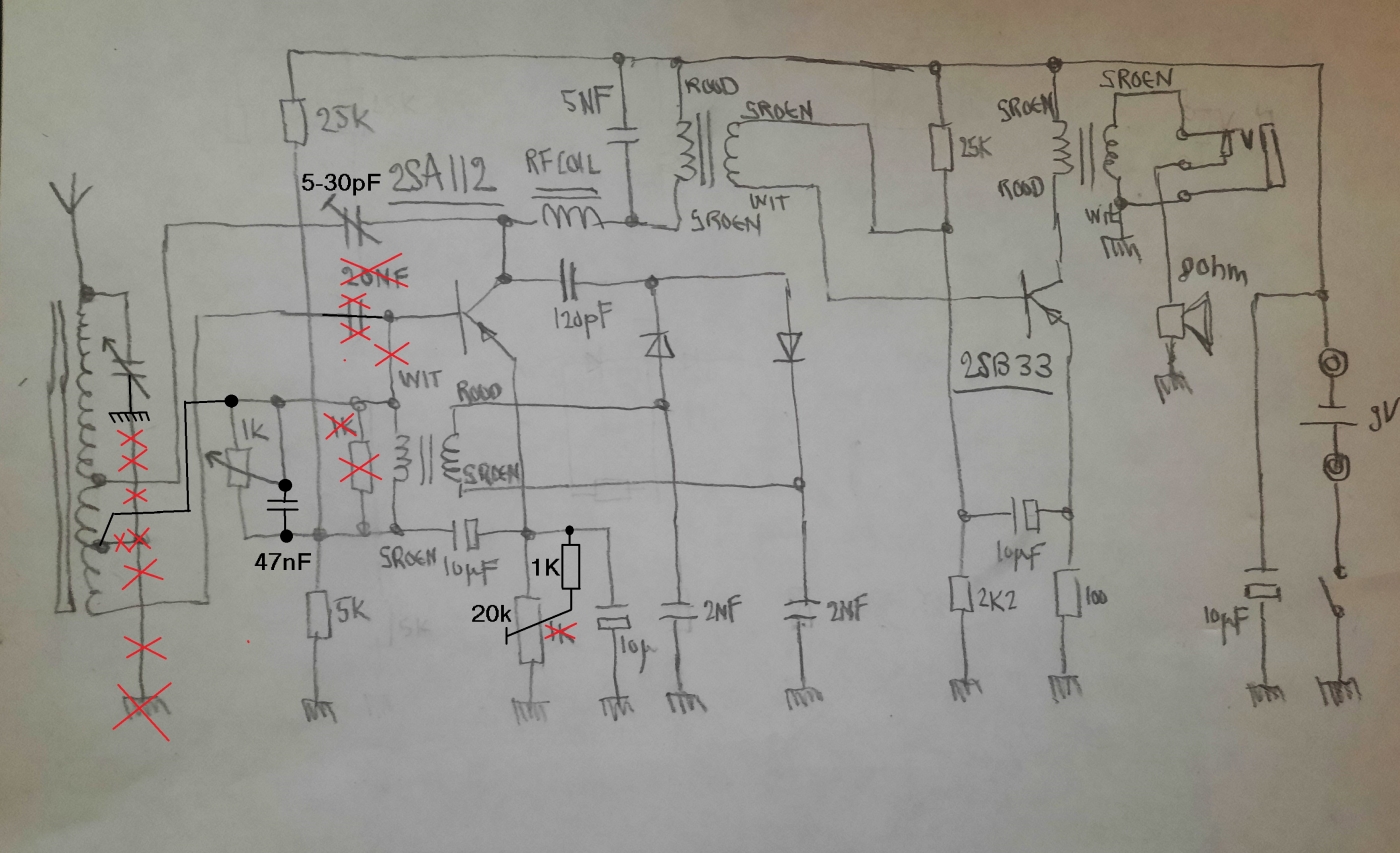 SROEN
ROOD
5NF
SROEN
SROEN
25K
RFCOIL
25K
5-30pF
2SA112
ROOD
WIT
SROEN
WIT
20NF
8Ohm
120pF
2SB33
WIT
ROOD
9V
1K
1K
SROEN
47nF
SROEN
10µF
1K
10µF
5K
20k
1K
2NF
2NF
2K2
100
10µ
10µF
5K